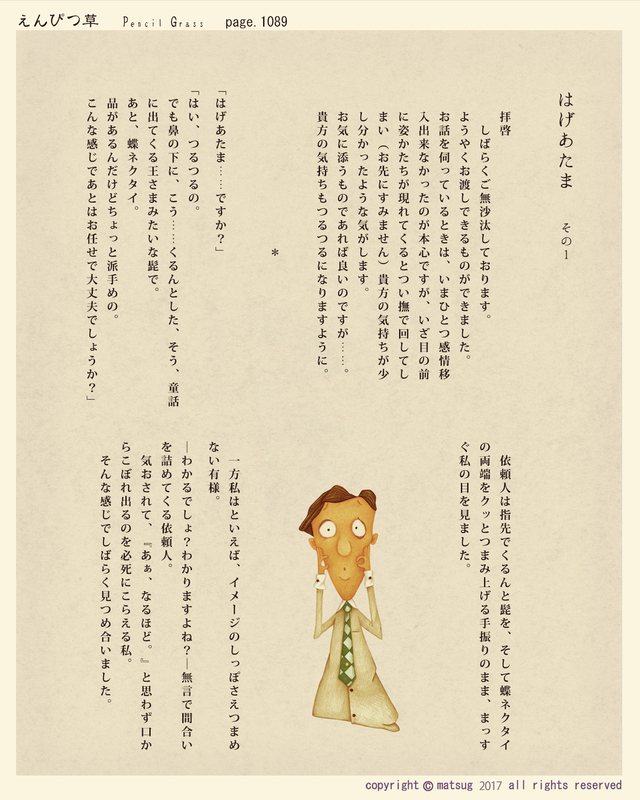 えんぴつ草 Pencil Grass page.1089
はげあたま その1
拝啓
しばらくご無沙汰しております。
ようやくお渡しできるものができました。
お話を伺っているときは、いまひとつ感情移
入出来なかったのが本心ですが、いざ目の前
に姿かたちが現れてくるとつい撫で回してし
まい（お先にすみません）貴方の気持ちが少
し分かったような気がします。
お気に添うものであれば良いのですが……。
貴方の気持ちもつるつるになりますように。
＊
「はげあたま……ですか？」
「はい、つるつるの。
でも鼻の下に、こう……くるんとした、そう、童話
に出てくる王さまみたいな髭で。
あと、蝶ネクタイ。
品があるんだけどちょっと派手めの。
こんな感じであとはお任せで大丈夫でしょうか？」
依頼人は指先でくるんと髭を、そして蝶ネクタイ
の両端をクッとつまみ上げる手振りのまま、まっす
ぐ私の目を見ました。
一方私はといえば、イメージのしっぽさえつまめ
ない有様。
―わかるでしょ？わかりますよね？―無言で間合い
を詰めてくる依頼人。
気おされて、『あぁ、なるほど。』と思わず口か
らこぼれ出るのを必死にこらえる私。
そんな感じでしばらく見つめ合いました。
copyright © matsug 2017 all rights reserved